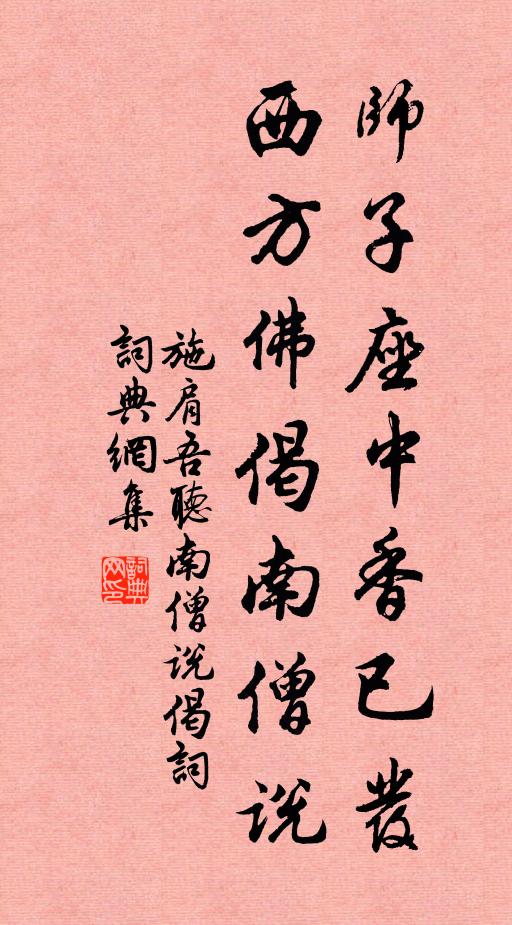 師子座中香已發
西方佛偈南僧説
施肩吾聽南僧说偈詞
詞典網集
詞典
网印